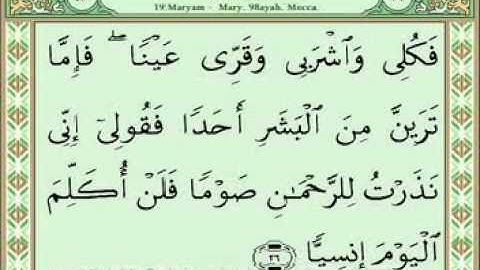 19:Maryam - Mary, 98ayah, Mecca
فَكُلِى وَٱشْرَبِى وَقَرِّى عَيْنًا ۖ فَإِمَّا
تَرَيِنَّ مِنَ ٱلْبَشَرِ أَحَدًا فَقُولِىٓ إِنِّى
نَذَرْتُ لِلرَّحْمَٰنِ صَوْمًا فَلَنْ أُكَلِّمَ
ٱلْيَوْمَ إِنسِيًّا ٢٦